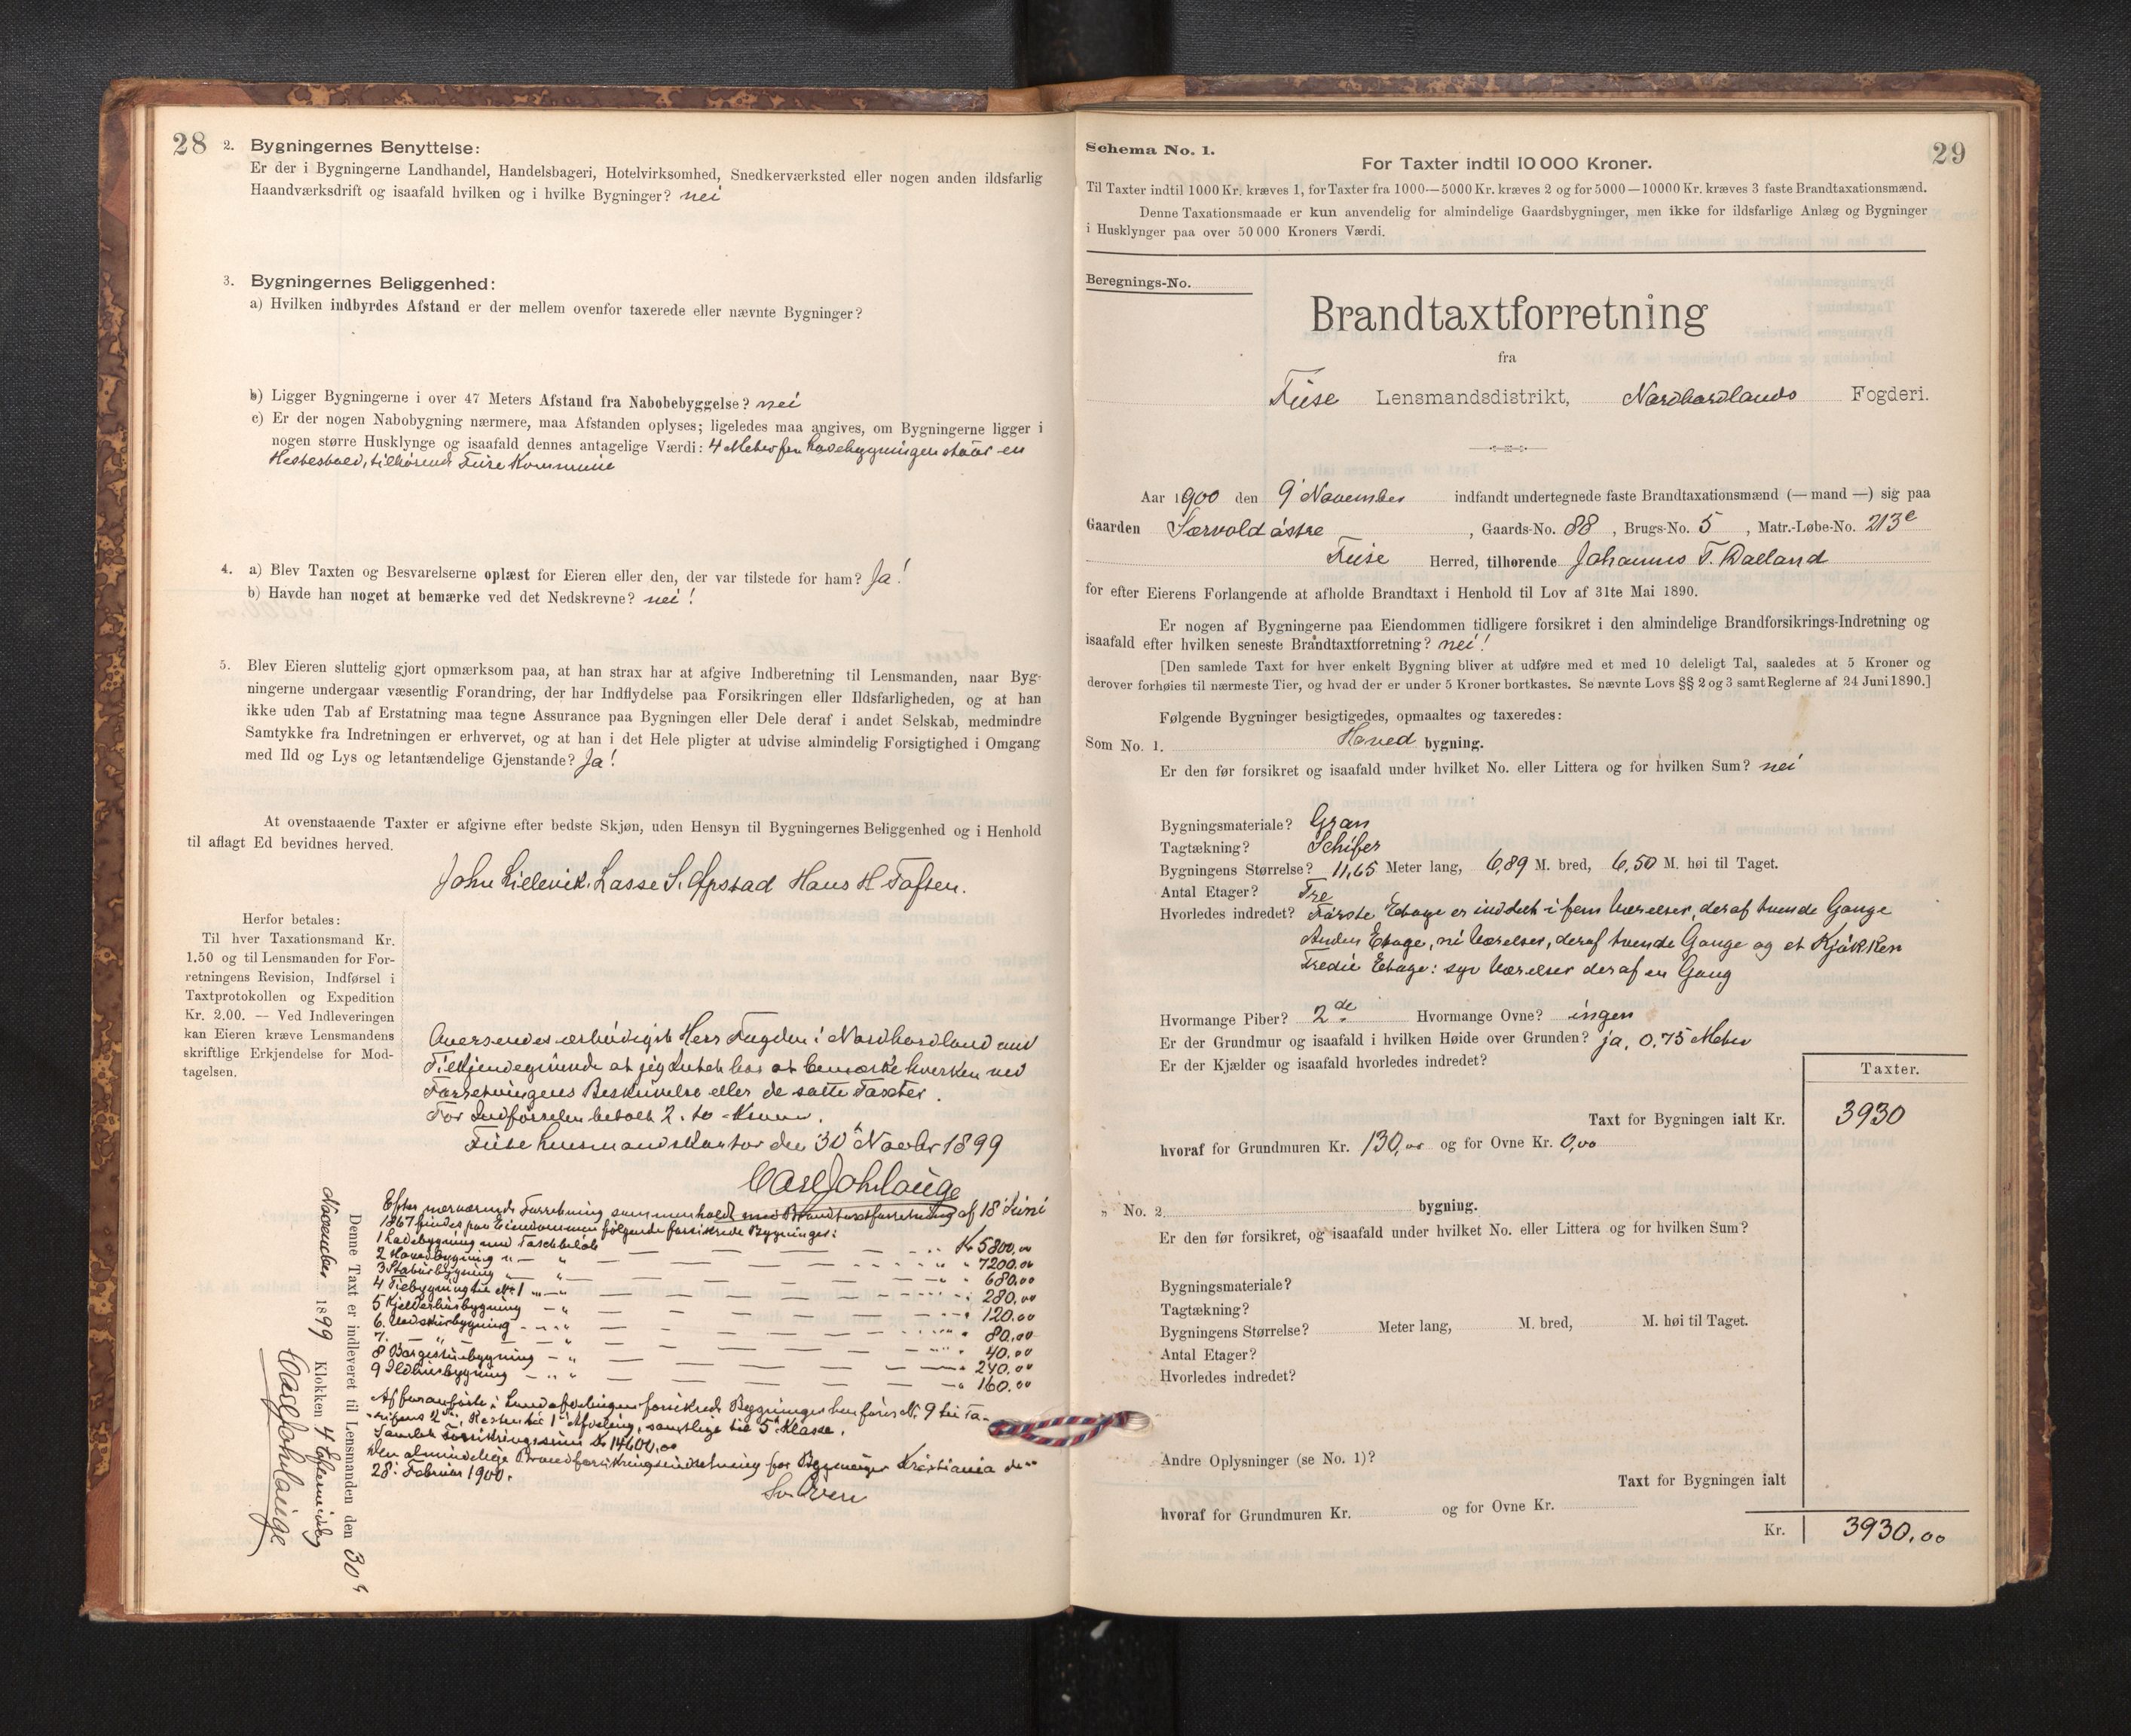 28
2. Bygningernes Benyttelse:
Er der i Bygningerne Landhandel, Handelsbageri, Hotelvirksomhed, Snedkerværksted eller nogen anden ildsfarlig
Haandværksdrift og isaafald hvilken og i hvilke Bygninger? nei
3. Bygningernes Beliggenhed:
a) Hvilken indbyrdes Afstand er der mellem ovenfor taxerede eller nævnte Bygninger?
b) Ligger Bygningerne i over 47 Meters Afstand fra Nabobebyggelse? nei
c) Er der nogen Nabobygning nærmere, maa Afstanden oplyses; ligeledes maa angives, om Bygningerne ligger i
nogen større Husklynge og isaafald dennes antagelige Værdi: 4 Meter fra Ladebygningen staar en
Hestestald, tilhørende Fuse Kommune
4. a) Blev Taxten og Besvarelserne oplæst for Eieren eller den, der var tilstede for ham? Ja!
b) Havde han noget at bemærke ved det Nedskrevne? nei!
5. Blev Eieren sluttelig gjort opmærksom paa, at han strax har at afgive Indberetning til Lensmanden, naar Byg-
ningerne undergaar væsentlig Forandring, der har Indflydelse paa Forsikringen eller Ildsfarligheden, og at han
ikke uden Tab af Erstatning maa tegne Assurance paa Bygningen eller Dele deraf i andet Selskab, medmindre
Samtykke fra Indretningen er erhvervet, og at han i det Hele pligter at udvise almindelig Forsigtighed i Omgang
med Ild og Lys og letantændelige Gjenstande? Ja!
At ovenstaaende Taxter er afgivne efter bedste Skjøn, uden Hensyn til Bygningernes Beliggenhed og i Henhold
til aflagt Ed bevidnes herved.
John Lillevik. Lasse S. Opstad Hans H. Tofsen.
Herfor betales:
Til hver Taxationsmand Kr.
1.50 og til Lensmanden for For-
retningens Revision, Indførsel i
Taxtprotokollen og Expedition
Kr. 2.00. — Ved Indleveringen
kan Eieren kræve Lensmandens
skriftlige Erkjendelse for Mod-
tagelsen.
Oversendes ærbødigst Herr Fogden i Nordhordland med
Tilkjendegivende at jeg Intet har at bemærke hverken ved
Forretningens Beskrivelse eller de satte Taxter.
For Indførselen betalt 2. to Kroner.
Fuse Lensmandskontor den 30te Novbr 1899
Carl Joh Lauge
Efter nærværende Forretning sammenholdt med Brandtaxtforretning af 18 Juni
1867 findes paa Eiendommen følgende forsikrede Bygninger:
1 Ladebygning med Taxtbeløb Kr 5800,00
2 Hovedbygning " — " 7200.00
3 Staburbygning " " 680.00
4 Tilbygning til No 1 " — " 280.00
5 Kjelderhusbygning — " 120.00
6. Vedskurbygning 80,00
7. — " — 40,00
8 Borgestuebygning — " 240.00
9 Ildhusbygning — " 160.00
Af foranførte i Landafdelingen forsikrede Bygninger henføres No 9 til Ta-
riffens 2den, Resten til 1ste Afdeling, samtlige til 5te Klasse.
Samlet Forsikringssum Kr 14600,00
Den almindelige Brandforsikringsindretning for Bygninger Kristiania den
28. Februar 1900.
Denne Taxt er indleveret til Lensmanden den 30te
November 1899 Klokken 4 Eftermiddag
Carl Joh Lauge
29
Schema No. 1.
For Taxter indtil 10 000 Kroner.
Til Taxter indtil 1000 Kr. kræves 1, for Taxter fra 1000—5000 Kr. kræves 2 og for 5000—10000 Kr. kræves 3 faste Brandtaxationsmænd.
Denne Taxationsmaade er kun anvendelig for almindelige Gaardsbygninger, men ikke for ildsfarlige Anlæg og Bygninger
i Husklynger paa over 50 000 Kroners Værdi.
Beregnings-No.
Brandtaxtforretning
fra
Fuse Lensmandsdistrikt, Nordhordlands Fogderi.
Aar 1900 den 9 November indfandt undertegnede faste Brandtaxationsmænd (— mand —) sig paa
Gaarden Sørvold østre, Gaards-No. 88, Brugs-No. 5, Matr.-Løbe-No. 213c
Fuse Herred, tilhørende Johannes T. Dalland
for efter Eierens Forlangende at afholde Brandtaxt i Henhold til Lov af 31te Mai 1890.
Er nogen af Bygningerne paa Eiendommen tidligere forsikret i den almindelige Brandforsikrings-Indretning og
isaafald efter hvilken seneste Brandtaxtforretning? nei!
[Den samlede Taxt for hver enkelt Bygning bliver at udføre med et med 10 deleligt Tal, saaledes at 5 Kroner og
derover forhøies til nærmeste Tier, og hvad der er under 5 Kroner bortkastes. Se nævnte Lovs §§ 2 og 3 samt Reglerne af 24 Juni 1890.]
Følgende Bygninger besigtigedes, opmaaltes og taxeredes:
Som No. 1. Hoved bygning.
Er den før forsikret og isaafald under hvilket No. eller Littera og for hvilken Sum? nei
Bygningsmateriale? Gran
Tagtækning? Schifer
Bygningens Størrelse? 11,65 Meter lang, 6,89 M. bred, 6,50 M. høi til Taget.
Antal Etager? Tre
Hvorledes indredet? Første Etage er inddelt i fem Værelser, deraf tvende Gange
Anden Etage, ni Værelser, deraf tvende Gange og et Kjøkken
Tredie Etage: syv Værelser deraf en Gang
Hvormange Piber? 2de Hvormange Ovne? ingen
Er der Grundmur og isaafald i hvilken Høide over Grunden? ja, 0,75 Meter
Er der Kjælder og isaafald hvorledes indredet?
Taxter.
Taxt for Bygningen ialt Kr. 3930
hvoraf for Grundmuren Kr. 130,00 og for Ovne Kr. 0,00
" No. 2. bygning.
Er den før forsikret, og isaafald under hvilket No. eller Littera og for hvilken Sum?
Bygningsmateriale?
Tagtækning?
Bygningens Størrelse? Meter lang, M. bred, M. høi til Taget.
Antal Etager?
Hvorledes indredet?
Andre Oplysninger (se No. 1)?
Taxt for Bygningen ialt
hvoraf for Grundmuren Kr. og for Ovne Kr.
Kr. 3930.00